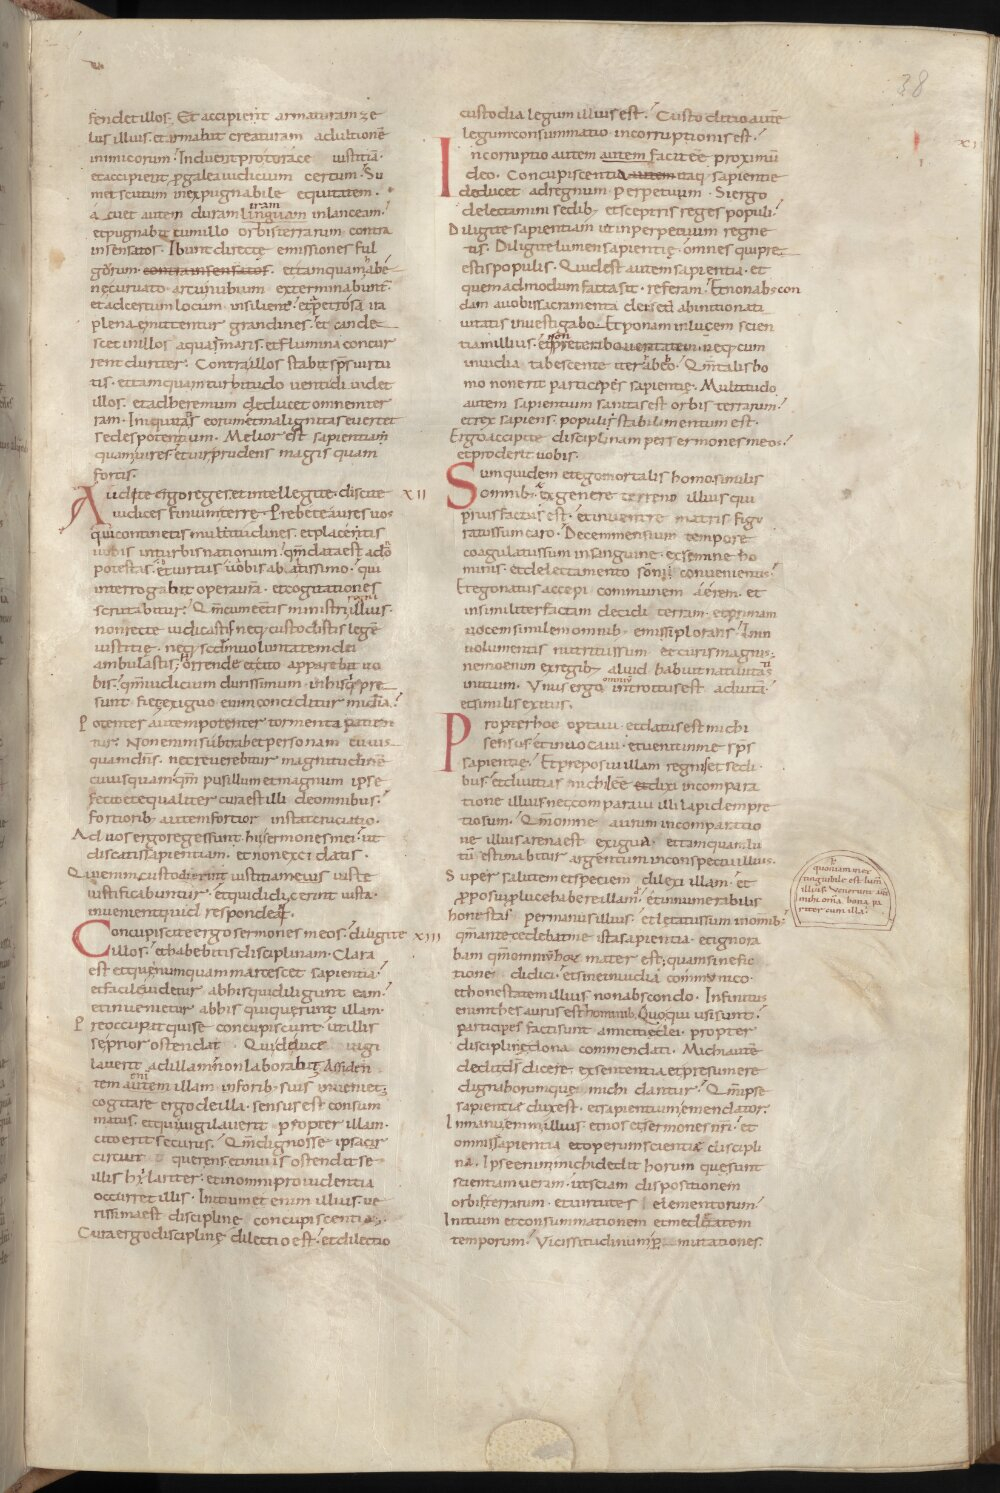 38
fendet illos. Et accipient armaturam ze
lus illius. et armabit creaturam ad ultionē
inimicorum. Induent pro torace iustitiā.
et accipient p galea iudicium certum. Su
met scutum inexpugnabile equitatem.
acuet autem duram linguam in lanceam.
iram
et pugnabit cum illo orbis terrarum contra
insensatos. Ibunt directe emissiones ful
gorum. contra insensatos. et tamquam abe
ne curuato arcu nubium exterminabunt
et ad certum locum insilient. et petrosa ira
plena emittentur grandines. et cande
scet in illos aqua maris. et flumina concur
rent duriter. Contra illos stabit sps uirtu
tis. et tamquam turbitudo uenti diuidet
illos. et ad heremum deducet omnem ter
ram. Iniquitas eorum et malignitas euertet
sedes potentium. Melior est sapientiam
quam uires. et uir prudens magis quam
fortis.
Audite ergo reges. et intellegite. discite XII
iudices finium terrę. Prebete aures uos
qui continetis multitudines. et placentis
uobis in turbis nationum. qm̄ data est a dō
potestas. et uirtus uobis ab altissimo. qui
interrogabit opera ur̄a. et cogitationes
scrutabitur. Qm̄ cum essetis ministri illius.
non recte iudicastis neq; custodistis legē
iustitię. neq; scdm uoluntatem dei
ambulastis. orrende et cito apparebit uo
bis. qm̄ iudicium durissimum in his qui pre
sunt fiet. exiguo enim conciditur mīdia.
Potentes autem potenter tormenta patien
tur. Non enim subtrahet personam cuius
quam dn̄s. nec reuerebitur magnitudinē
cuiusquam. qm̄ pusillum et magnum ipse
fecit. et equaliter cura est illi de omnibus.
fortiorib; autem fortior instat cruciatio.
Ad uos ergo reges sunt hi sermones mei. ut
discatis sapientiam. et non excidatis.
Qui enim custodierint iustitiam eius iuste
iustificabuntur. et qui didicerint iusta.
inuenient quid respondeat.
Concupiscite ergo sermones meos. diligite XIII
illos. et habebitis disciplinam. Clara
est et que numquam marcescet sapientia.
et facile uidetur ab his qui diligunt eam.
et inuenietur ab his qui querunt illam.
Preoccupat qui se concupiscunt. ut illis
se prior ostendat. Qui de luce uigi
lauerit ad illam non laborabit. Assiden
tem autem illam in forib; suis inueniet;
cogitare ergo de illa. sensus est consum
matus. et qui uigilauerit propter illam.
cito erit securus. Qm̄ dignos se ipsa cir
cuit querens. et in uiis ostendit se
illis hylariter. et in omni prouidentia
occurret illis. Initium et enim illius. ue
rissima est disciplinę concupiscentia.
Cura ergo disciplinę dilectio est. et dilectio
custodia legum illius est. Custoditio autē
legum consummatio incorruptionis est.
Incorruptio autem autem facit eē proximū
deo. Concupiscentia autem itaq; sapientie
deducet ad regnum perpetuum. Si ergo
delectamini sedib; et sceptris reges populi.
Diligite sapientiam ut in perpetuum regne
tis. Diligite lumen sapientię. omnes qui pre
estis populis. Quid est autem sapientia. et
quemadmodum facta sit. referam. Et non abscon
dam a uobis sacramenta dei. sed ab initio nati
uitatis inuestigabo. Et ponam in lucem scien
tiam illius. et non preteribo ueritatem. neq; cum
inuidia tabescente iter abeo. Qm̄ talis ho
mo non erit particeps sapientię. Multitudo
autem sapientium sanitas est orbis terrarum.
et rex sapiens. populi stabilimentum est.
Ergo accipite disciplinam per sermones meos.
et proderit uobis.
Sum quidem et ego mortalis homo similis
omnib;. ex genere terreno illius qui
prius factus est. et in uentre matris figu
ratus sum caro. Decem mensium tempore
coagulatus sum in sanguine. ex semine ho
minis. et delectamento somni conueniente.
Et ego natus accepi communem aerem. et
in similiter factam decidi terram. et primam
uocem similem omnib; emisi plorans. In in
uolumentis nutritus sum et curis magnis;
nemo enim ex regib; aliud habuit natiuitatis
initium. Unus ergo introitus est ad uitā.
omnium
et similis exitus.
Propter hoc optaui. et datus est michi
sensus. et inuocaui. et uenit in me sps
sapientię. Et preposui illam regnis et sedi
bus. et diuitias nichil eē duxi in compara
tione illius nec comparaui illi lapidem pre
tiosum. Qm̄ omne aurum in comparatio
ne illius arena est exigua. et tamquam lu
tū estimabitur argentum in conspectu illius.
Super salutem et speciem dilexi illam. et
pposui p luce habere illam. et innumerabilis
honestas per manus illius. et letatus sum in omīb;
qm̄ antecedebat me ista sapientia. et ignora
bam qm̄ omnium hoc mater est; quam sine fic
tione didici. et sine inuidia communico.
et honestatem illius non abscondo. Infinitus
enim thesaurus est hominib; Quo qui usi sunt.
participes facti sunt amicitię dei. propter
disciplinę dona commendati. Michi autē
dedit ds dicere ex sententia. et presumere
digna horum que michi dantur. Qm̄ ipse
sapientię dux est. et sapientium emendator.
In manu enim illius. et nos et sermones nri. et
omnis sapientia et operum scientię discipli
na. Ipse enim michi dedit horum que sunt
scientiam ueram. ut sciam dispositionem
orbis terrarum. et uirtutes elementorum.
Initium et consummationem et medietatem
temporum. Vicissitudinum p mutationes.
quoniam inex
tinguibile est lum̄
illius. Venerunt aū
mihi om̄a bona pa
riter cum illa.